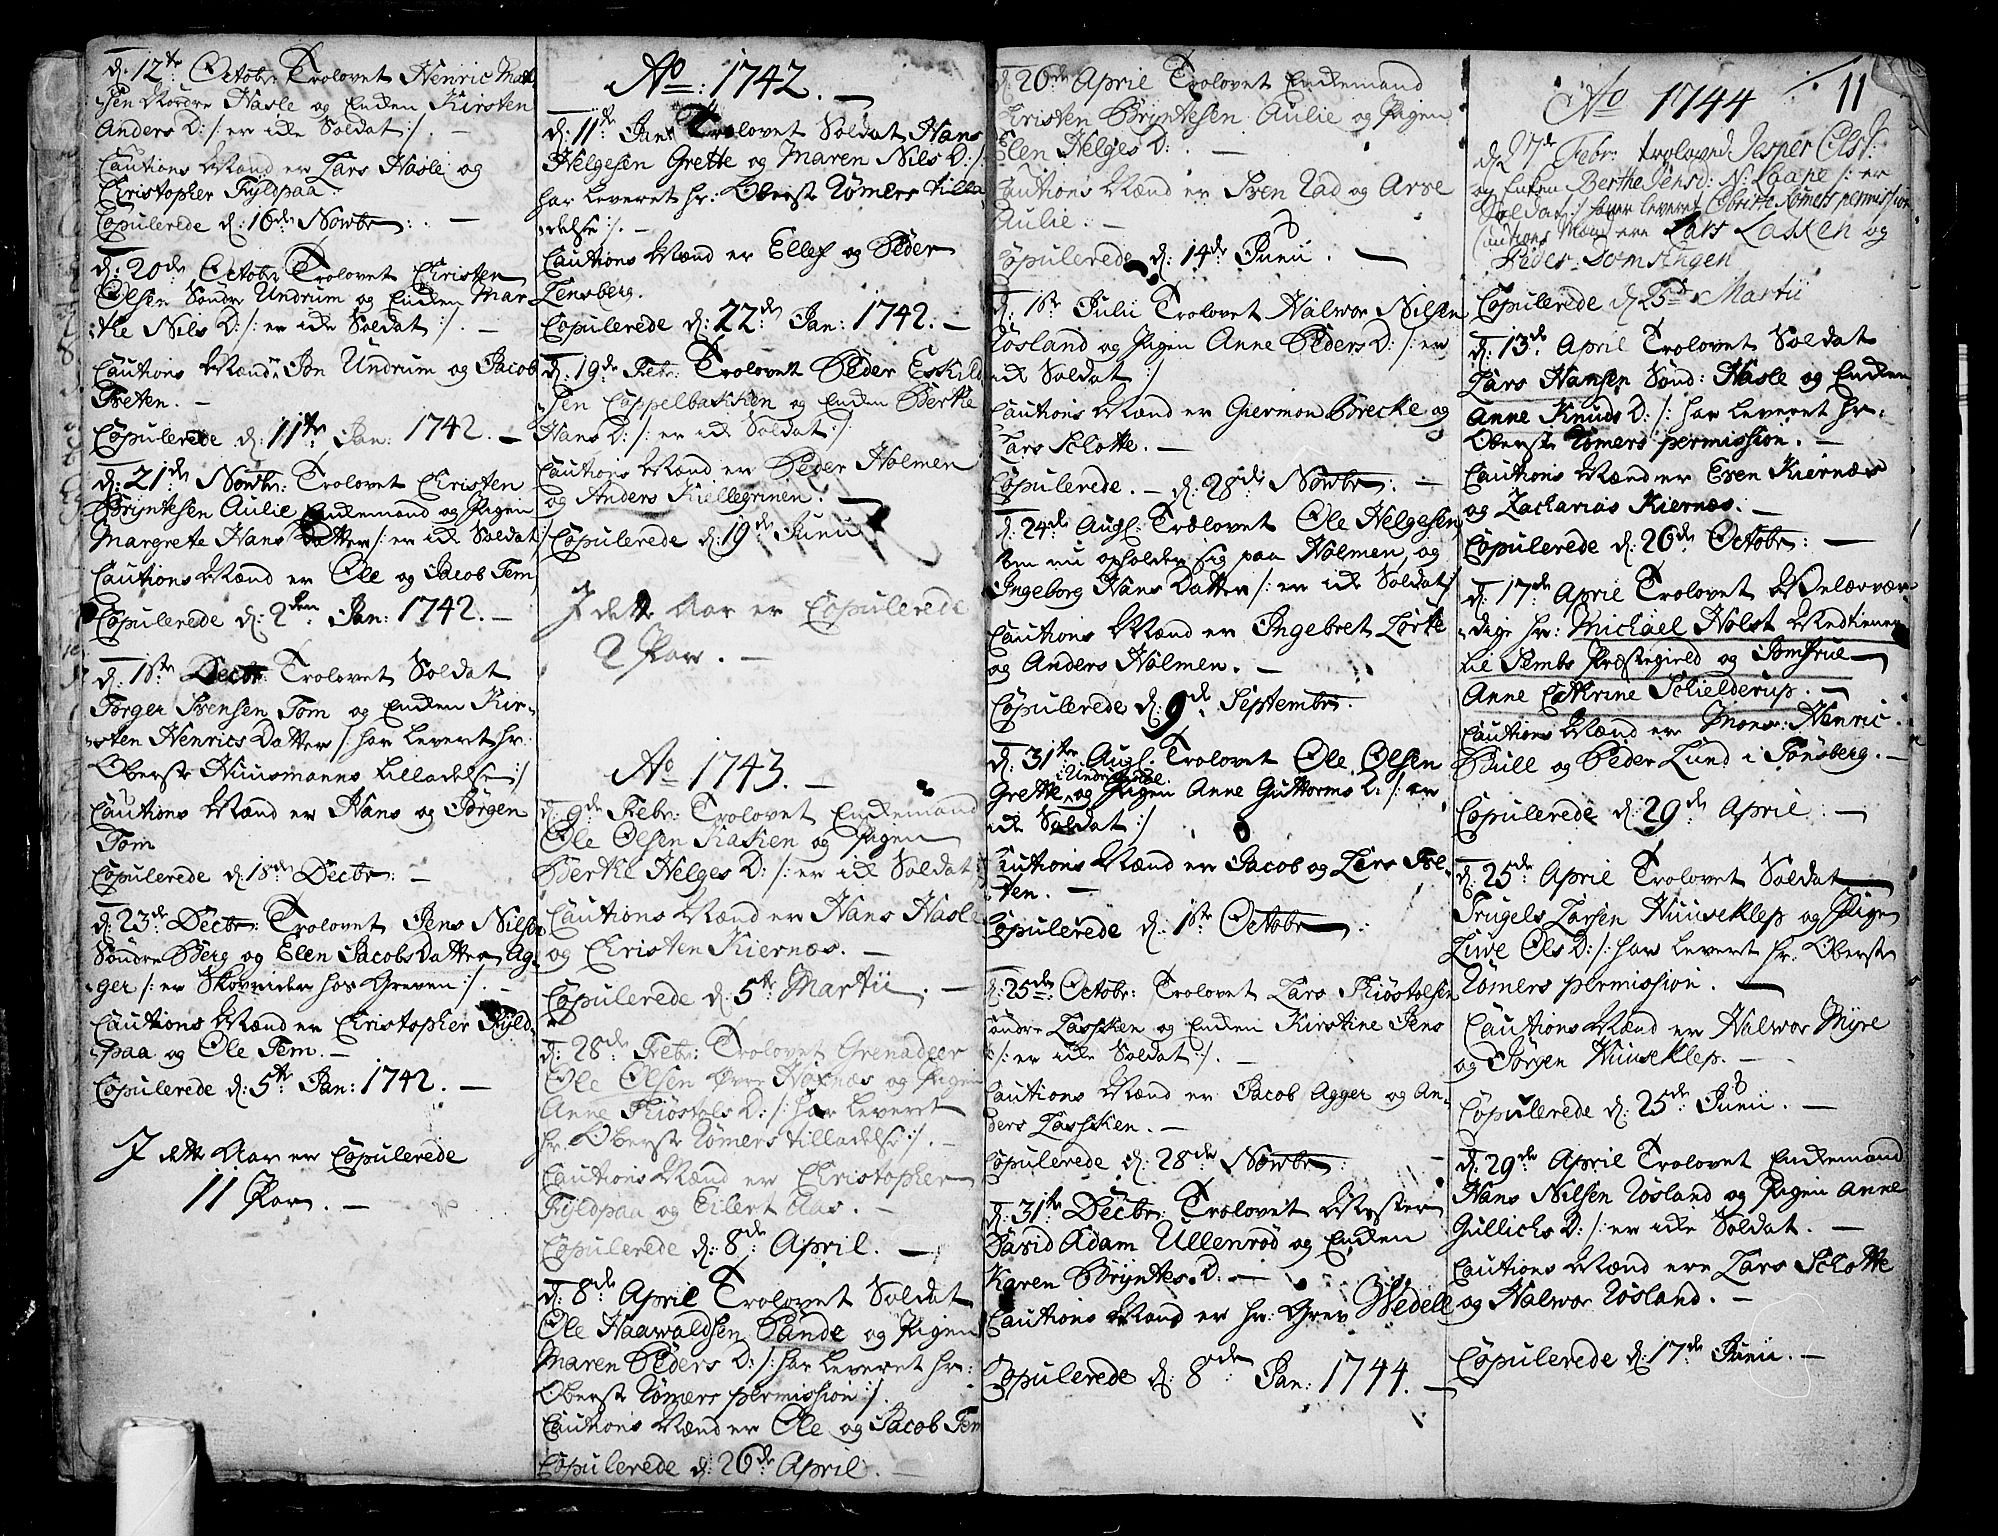 d: 12te Octobr Trolovet Henric Mat
sen Nordre Hasle og Enken Kirsten
Anders D: /: er icke Soldat :/. —
Cautions Mænd er Lars Hasle og
Christopher Fyldpaa.
Copulerede d: 16de Novbr: —
d: 20de Octobr Trolovet Christen
Olsen Søndre Undrum og Enken Mar
the Nils D: /: er icke Soldat :/. —
Cautions Mænd: Jon Undrum og Jacob
Freten. —
Copulerede d: 11te Jan: 1742. —
d: 21de Novbr: Trolovet Christen
Bryntesen Aulie Enkemand og Pigen
Margrete Hans Datter /: er icke Soldat :/
Cautions Mænd er Ole og Jacob Fem
Copulerede d: 2den Jan: 1742. —
d: 1ste Decbr: Trolovet Soldat
Torger Svensen Tom og Enken Kir-
sten Henrics Datter /: har leveret hr:
Oberste Huusmanns tilladelse :/
Cautions Mænd er Hans og Jørgen
Tom
Copulerede d: 18de Decbr: —
d: 23de Decbr: Trolovet Jens Nilsen
Søndre Berg og Elen Jacobs Datter Ag-
ger /: er Skovrider hos Greven :/. —
Cautions Mænd er Christopher Fyld-
paa og Ole Fem. —
Copulerede d: 5te Jan: 1742. —
I dette Aar er Copulerede
11 Par. —
Ao: 1742. —
d: 11te Jan: Trolovet Soldat Hans
Helgesen Grette og Maren Nils D: /:
har leveret hr: Oberste Rømers tilla
delse :/. —
Cautions Mænd er Ellef og Peder
Tensberg.
Copulerede d: 22de Jan: 1742. —
d: 19de Febr: Trolovet Peder Eskild
sen Coppelbakken og Enken Berthe
Hans D: /: er icke Soldat :/
Cautions Mænd er Peder Holmen
og Anders Kiellegrinen. —
Copulerede d: 19de Junii
I dette Aar er Copulerede
2 Par. —
Ao 1743. —
d: 9de Febr: Trolovet Enkemand
Ole Olsen Kaken og Pigen
Berthe Helges D: /: er icke Soldat :/
Cautions Mænd er Hans Hasle
og Christen Kiernæs. —
Copulerede d: 5te Martii. —
d: 28de Febr: Trolovet Grenadeer
Ole Olsen Øvre Hofnæs og Pigen
Anne Thiøstels D: /: har leveret
hr: Oberste Rømers tilladelse :/. —
Cautions Mænd er Christopher
Fyldpaa og Eilert Aas. —
Copulerede d: 8de April. —
d: 8de April Trolovet Soldat
Ole Haawaldsen Sande og Pigen
Maren Peders D: /: har leveret hr:
Oberste Rømers permission :/.
Cautions Mænd er Ole og Jacob Fem
Copulerede d: 26de April. —
d: 26de April Trolovet Enkemand
Kristen Bryntesen Aulie og Pigen
Elen Helges D: —
Cautions Mænd er Sven Rad og Arve
Aulie. —
Copulerede d: 14de Junii. —
d: 1ste Julii Trolovet Halwor Nilsen
Røsland og Pigen Anne Peders D: /: er
icke Soldat :/
Cautions Mænd er Giermon Brecke og
Lars Slotte. —
Copulerede. — d: 28de Novbr: —
d: 24de Augl: Trolovet Ole Helgesen
som nu opholder sig paa Holmen, og
Ingeborg Hans Datter /: er icke Soldat :/
Cautions Mænd er Ingebret Lørke
og Anders Holmen. —
Copulerede d: 9de Septembr.
d: 31te Augl. Trolovet Ole Olsen
Grette og Pigen Anne Guttorms D: /: er
icke Soldat :/
Cautions Mænd er Jacob og Lars Fre-
ten. —
Copulerede d: 1ste Octobr:
d: 25de Octobr: Trolovet Lars Thiøstolsen
Søndre Lassken og Enken Kirstine Jens
D: /: er icke Soldat :/. —
Cautions Mænd er Jacob Agger og An-
ders Lassken. —
Copulerede d: 28de Novbr: —
d: 31te Decbr: Trolovet Mester
David Adam Ullenrød og Enken
Karen Bryntes D. —
Cautions Mand er hr: Grev Wedell
Copulerede d: 8de Jan: 1744. —
11
Ao 1744
d 27de Febr: troloved Jesper Olss:
og Enken Berthe Jensd: N: Laape /: er
Soldat :/ haver leveret Obriste Rømers permission
Cautions Mænd ere Lars Lasken og
Peder Somstngen
Copulerede d 25de Martii
d: 13de April Trolovet Soldat
Lars Hansen Sønd: Hasle og Enken
Anne Knuds D: /: har leveret hr.
Oberste Rømers permission. —
Cautions Mænd er Even Kiernæs
og Zacharias Kiernæs. —
Copulerede d: 26de Octobr: —
d: 17de April Trolovet Velærvær
dige hr: Michael Holst Medtiener
til Sembs Præstegield og Jomfrue
Anne Cathrine Schielderup. —
Cautions Mænd er Mons: Henric
Bull og Peder Lund i Tønsberg. —
Copulerede d: 29de April. —
d: 25de April Trolovet Soldat
Trugels Larsen Huuseklep og Pigen
Live Ols D: /: har leveret hr. Oberste
Rømers permission. —
Cautions Mænd er Halwor Myre
og Jørgen Huuseklep. —
Copulerede d: 25de Junii. —
d: 29de April Trolovet Enkemand
Hans Nilsen Røsland og Pigen Anne
Gullichs D: /: er icke Soldat. —
Cautions Mænd ere Lars Slotte
og Halwor Røsland. —
Copulerede d: 17de Junii. —